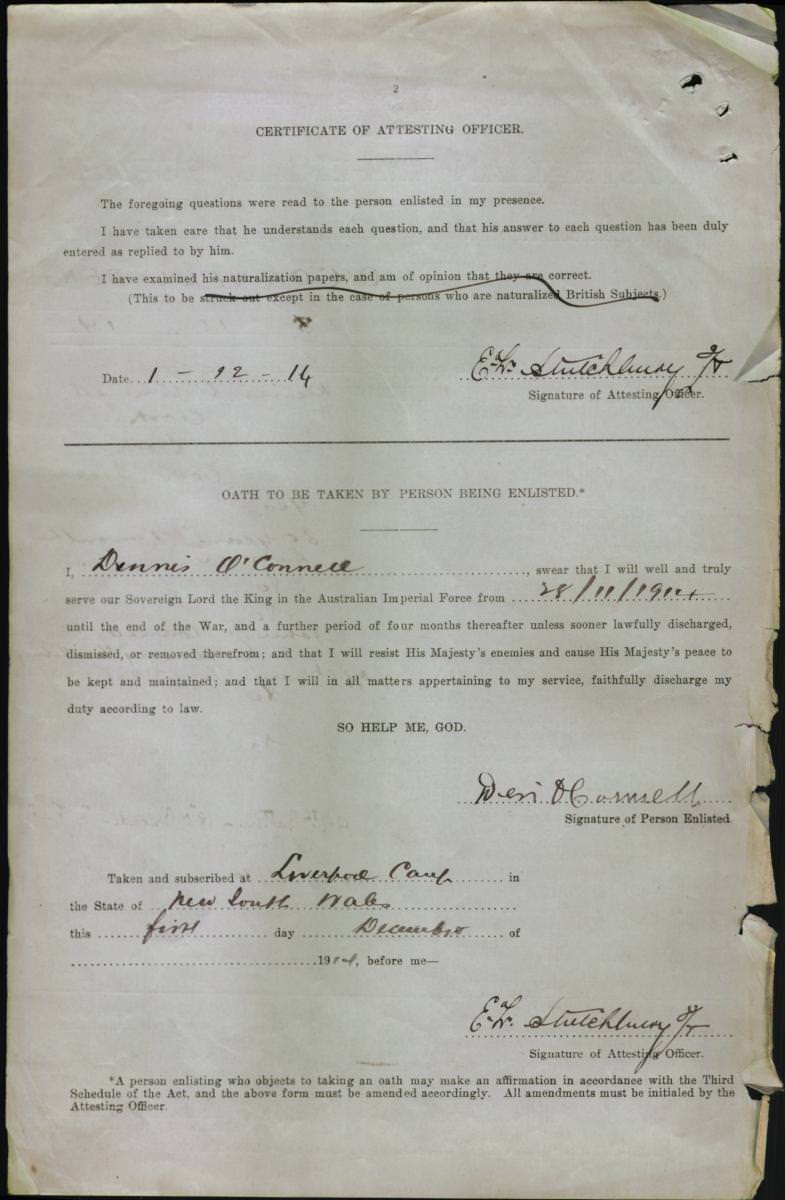 2
CERTIFICATE OF ATTESTING OFFICER.
The foregoing questions were read to the person enlisted in my presence.
I have taken care that he understands each question, and that his answer to each question has been duly
entered as replied to by him.
I have examined his naturalization papers, and am of opinion that they are correct.
(This to be struck out except in the case of persons who are naturalized British Subjects.)
Date 1 - 12 - 14 E. W. Stutchbury
Signature of Attesting Officer.
OATH TO BE TAKEN BY PERSON BEING ENLISTED.*
I, Dennis O'Connell, swear that I will well and truly
serve our Sovereign Lord the King in the Australian Imperial Force from 28/11/1914
until the end of the War, and a further period of four months thereafter unless sooner lawfully discharged,
dismissed, or removed therefrom; and that I will resist His Majesty's enemies and cause His Majesty's peace to
be kept and maintained; and that I will in all matters appertaining to my service, faithfully discharge my
duty according to law.
SO HELP ME, GOD.
Den O'Connell
Signature of Person Enlisted.
Taken and subscribed at Liverpool Camp in
the State of New South Wales
this first day December of
1914, before me—
E. W. Stutchbury
Signature of Attesting Officer.
*A person enlisting who objects to taking an oath may make an affirmation in accordance with the Third
Schedule of the Act, and the above form must be amended accordingly. All amendments must be initialed by the
Attesting Officer.